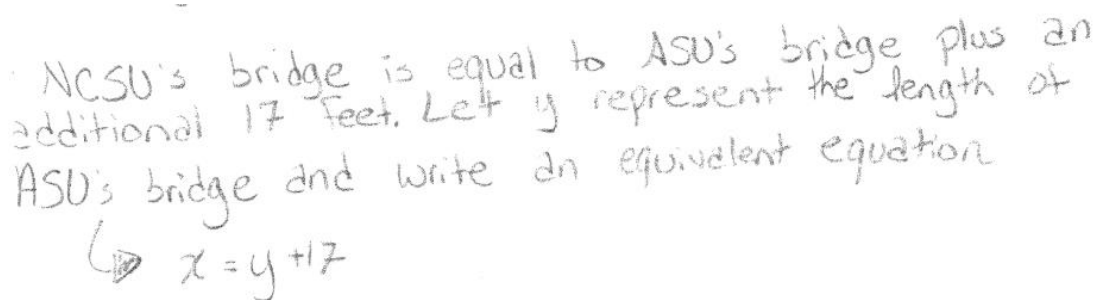 NCSU's bridge is equal to ASU's bridge plus an
additional 17 feet. Let y represent the length of
ASU's bridge and write an equivalent equation
x = y +17